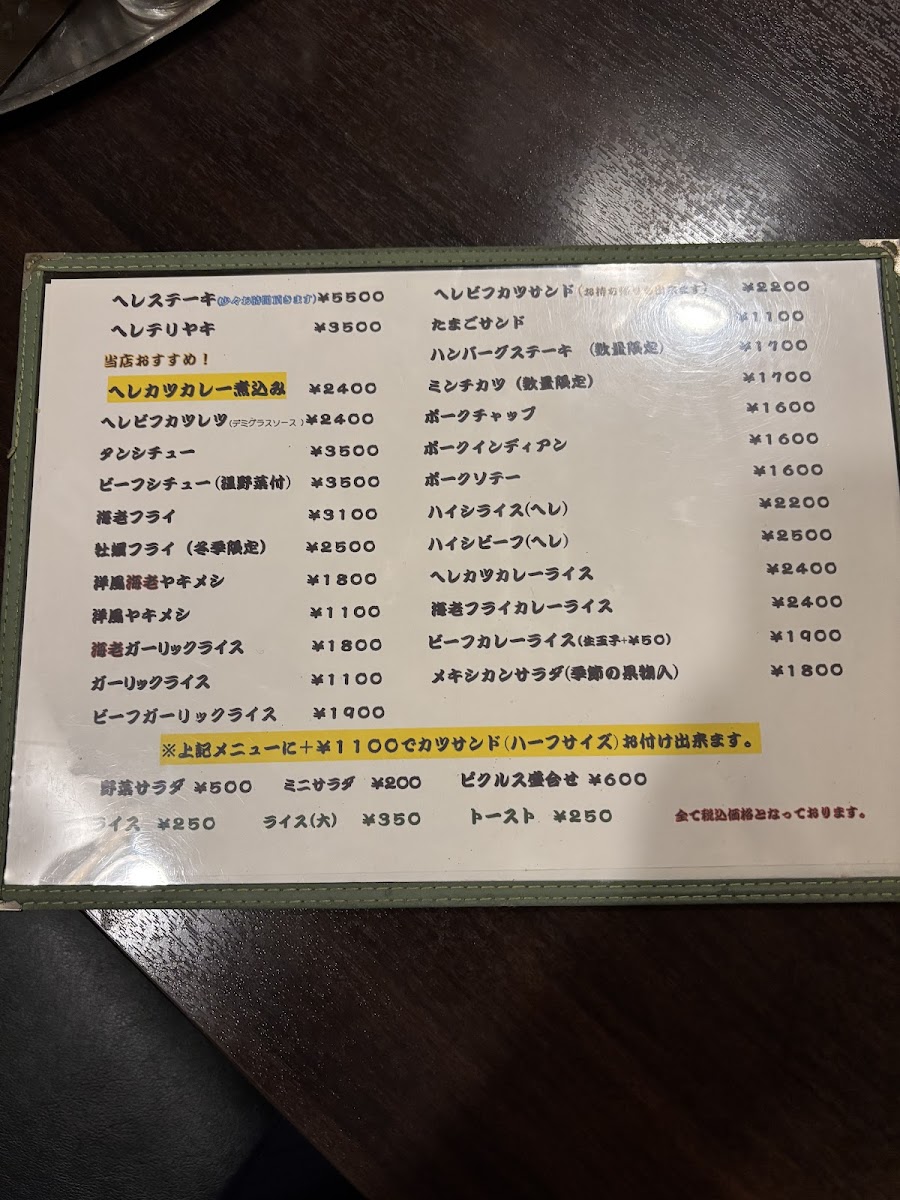 ヘレステーキ(少々お時間頂きます)¥5500
ヘレテリヤキ ¥3500
当店おすすめ！
ヘレカツカレー煮込み ¥2400
ヘレビフカツレツ(デミグラスソース)¥2400
タンシチュー ¥3500
ビーフシチュー(温野菜付) ¥3500
海老フライ ¥3100
牡蠣フライ(冬季限定) ¥2500
洋風海老ヤキメシ ¥1800
洋風ヤキメシ ¥1100
海老ガーリックライス ¥1800
ガーリックライス ¥1100
ビーフガーリックライス ¥1900
ヘレビフカツサンド(お持ち帰りも出来ます) ¥2200
たまごサンド ¥1100
ハンバーグステーキ (数量限定) ¥1700
ミンチカツ(数量限定) ¥1700
ポークチャップ ¥1600
ポークインディアン ¥1600
ポークソテー ¥1600
ハイシライス(ヘレ) ¥2200
ハイシビーフ(ヘレ) ¥2500
ヘレカツカレーライス ¥2400
海老フライカレーライス ¥2400
ビーフカレーライス(生玉子+¥50) ¥1900
メキシカンサラダ(季節の果物入) ¥1800
※上記メニューに＋¥1100でカツサンド(ハーフサイズ)お付け出来ます。
野菜サラダ ¥500 ミニサラダ ¥200 ピクルス盛合せ ¥600
ライス ¥250 ライス(大) ¥350 トースト ¥250 全て税込価格となっております。